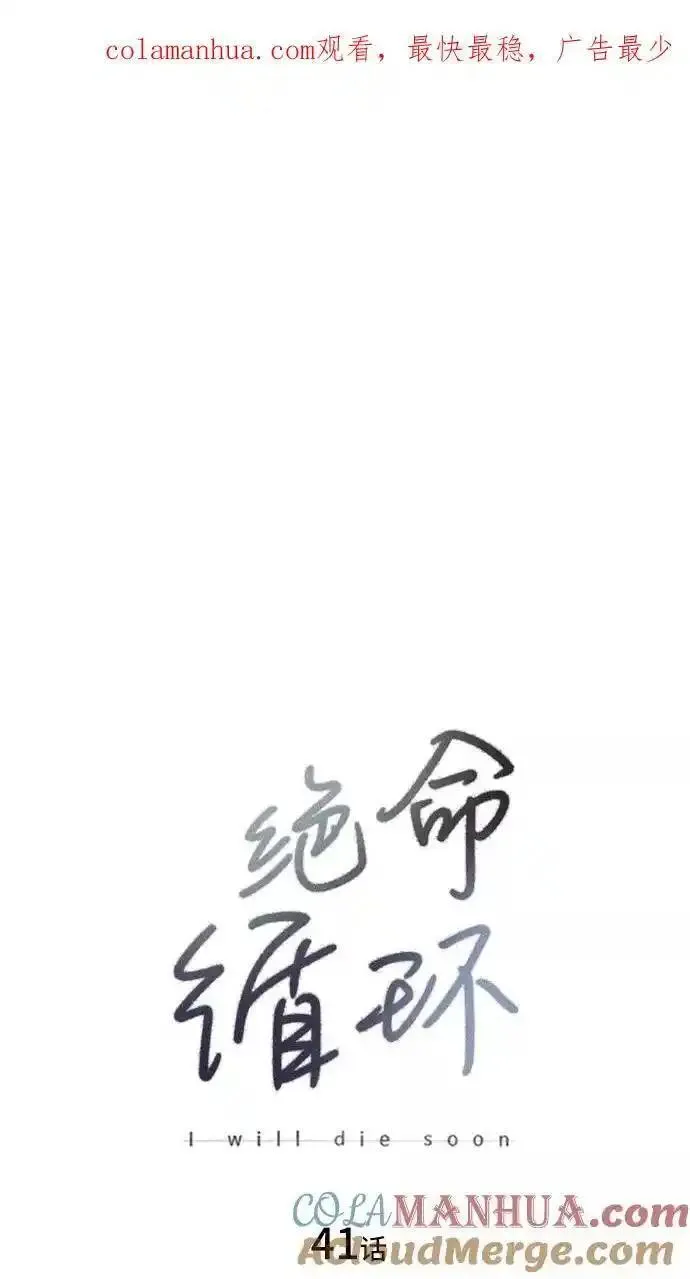 colamanhua.com观看，最快最稳，广告最少
绝命
循环
I will die soon
COLAMANHUA.COM
41话
ACloudMerge.com